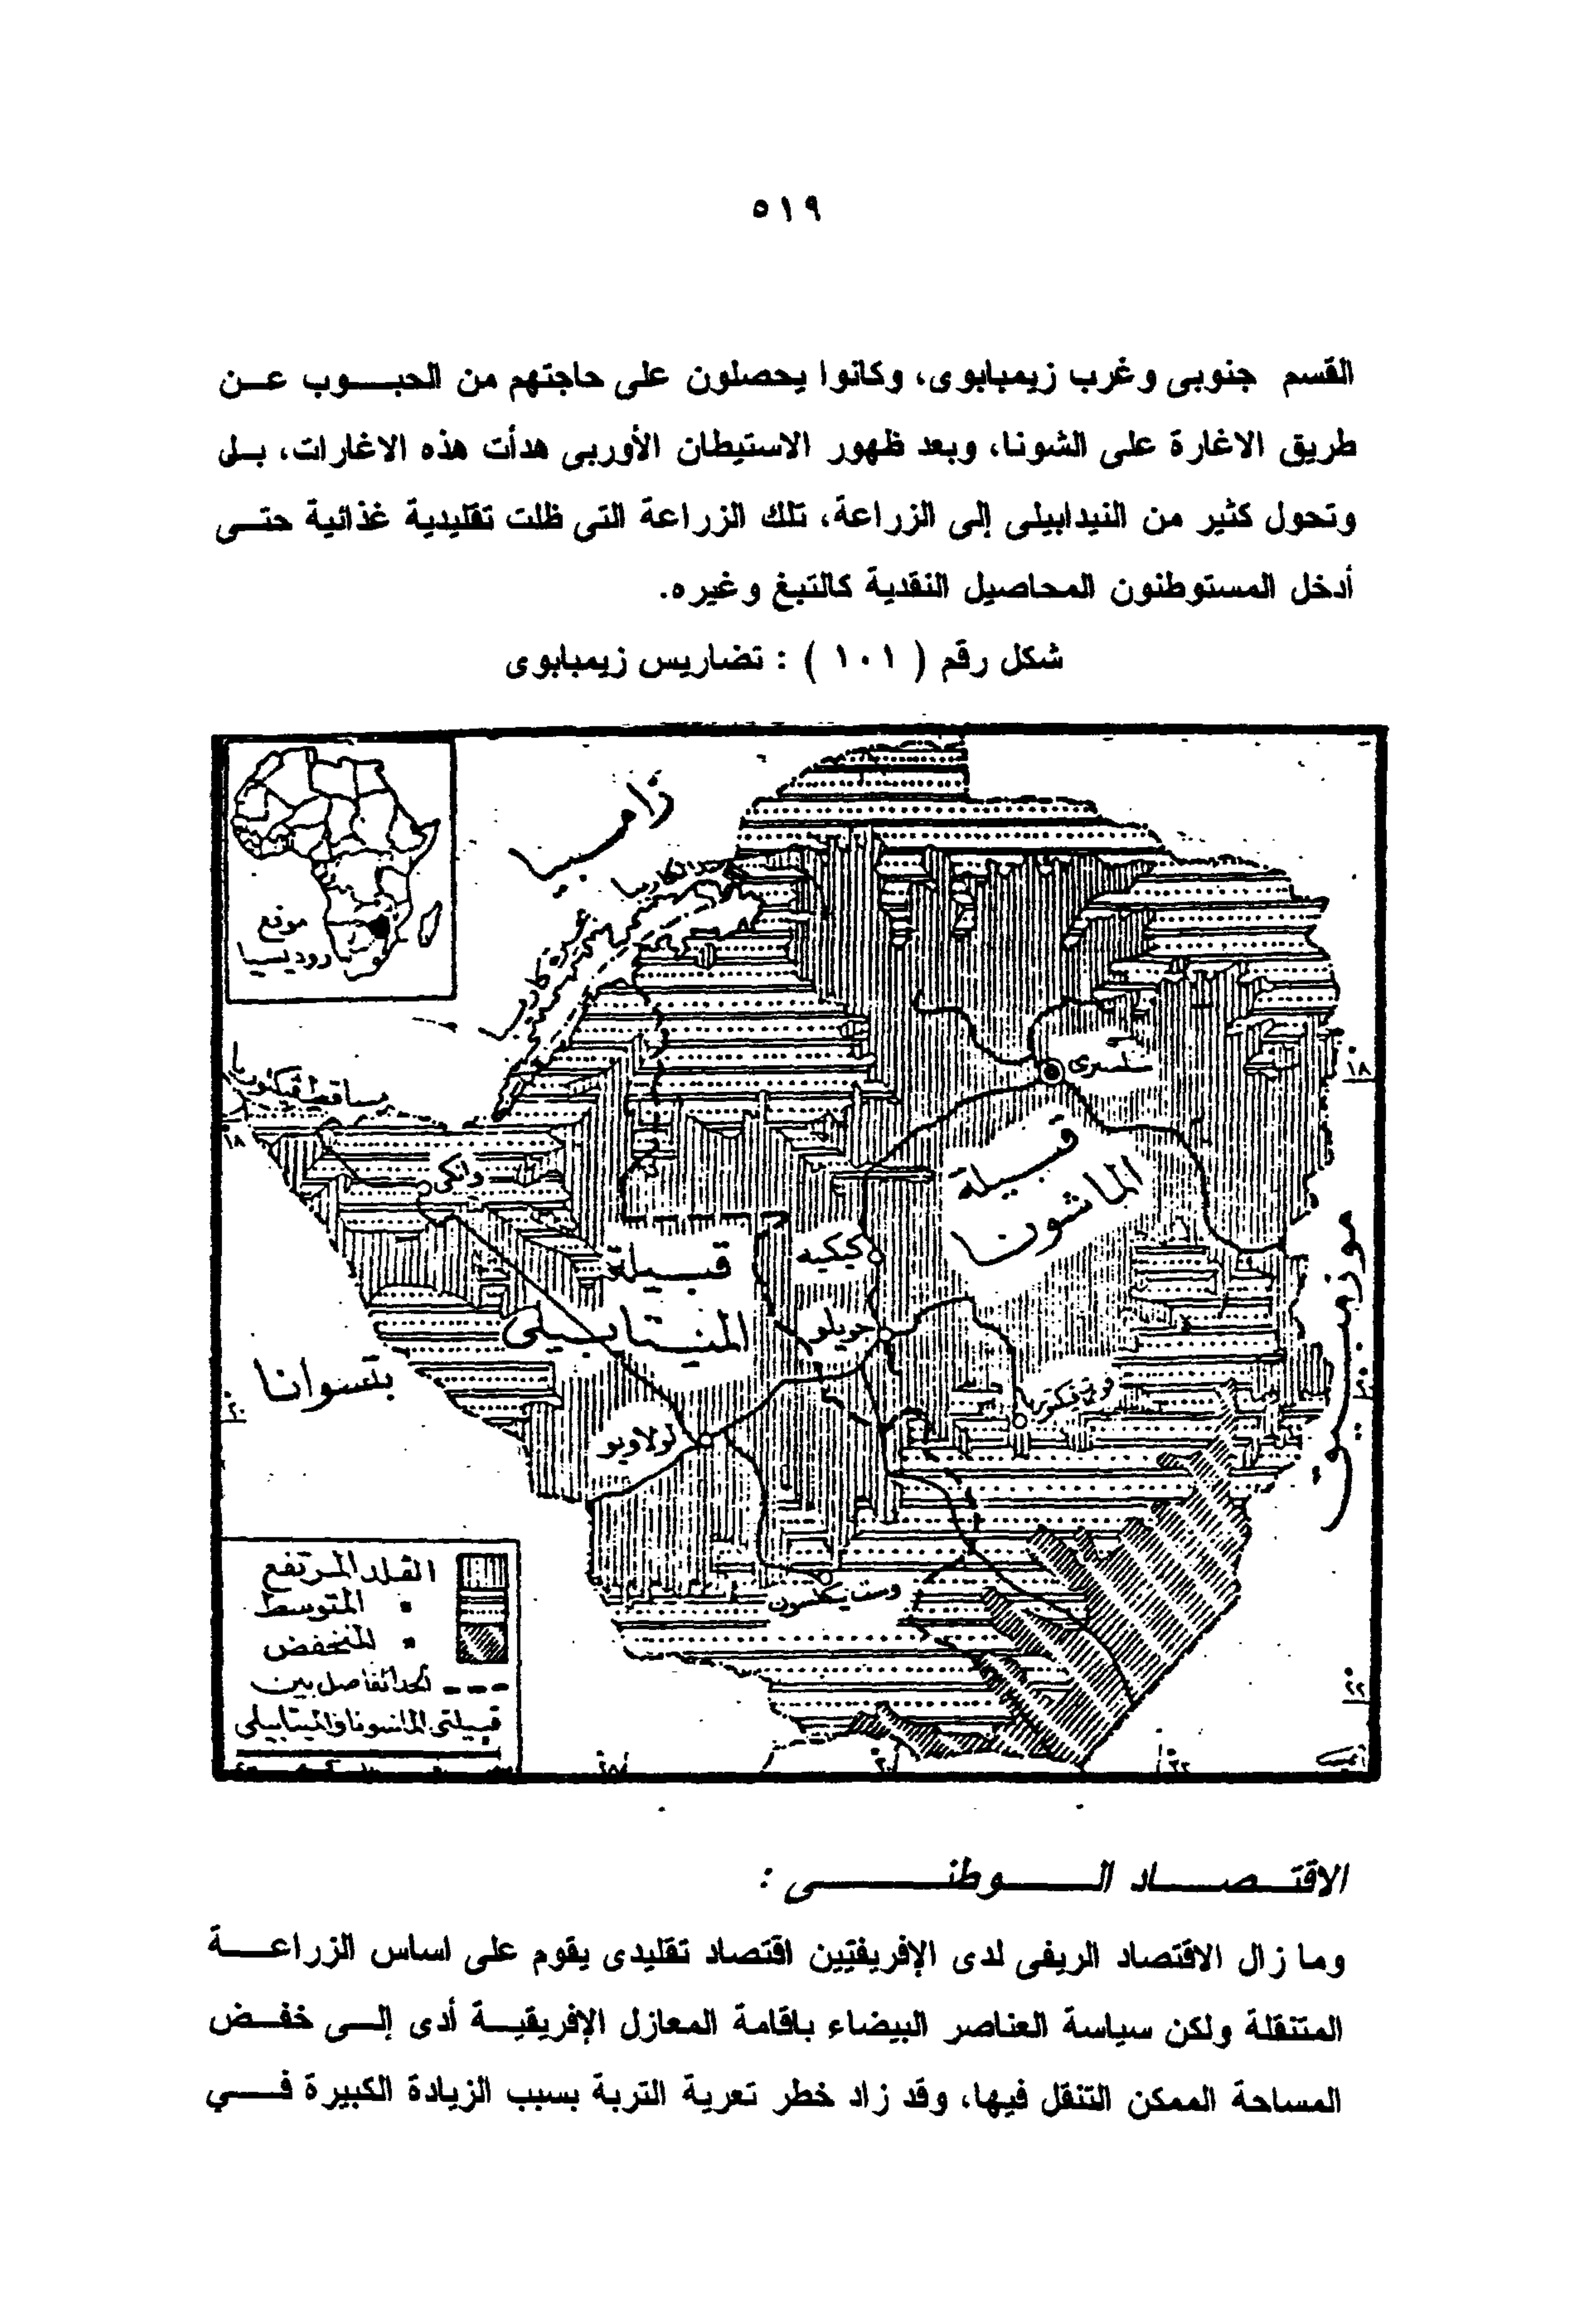 ٥١٩
القسم جنوبى وغرب زيمبابوى، وكانوا يحصلون على حاجتهم من الحبوب عن
طريق الاغارة على الشونا، وبعد ظهور الاستيطان الأوربى هدأت هذه الاغارات، بل
وتحول كثير من النيدابيلى إلى الزراعة، تلك الزراعة التى ظلت تقليدية غذائية حتى
أدخل المستوطنون المحاصيل النقدية كالتبغ وغيره.
شكل رقم ( ١٠١ ) : تضاريس زيمبابوى
زامبيا
موقع
روديسيا
مساقط فيكتوريا
سلسبرى
١٨
١٨
وانكى
قبيلة
الماشونا
كيكيه
قبيلة
المنيتابيلى
جويلو
موزمبيق
بتسوانا
فورت فيكتوريا
٢٠
٢٠
لولاويو
وست نيكلسون
الفلد المرتفع
" المتوسط
" المنخفض
الحد الفاصل بين
قبيلتى الماشونا والميتابيلى
٢٢
الاقتصاد الوطنى :
وما زال الاقتصاد الريفى لدى الإفريقيين اقتصاد تقليدى يقوم على اساس الزراعة
المتنقلة ولكن سياسة العناصر البيضاء باقامة المعازل الإفريقية أدى إلى خفض
المساحة الممكن التنقل فيها، وقد زاد خطر تعرية التربة بسبب الزيادة الكبيرة في